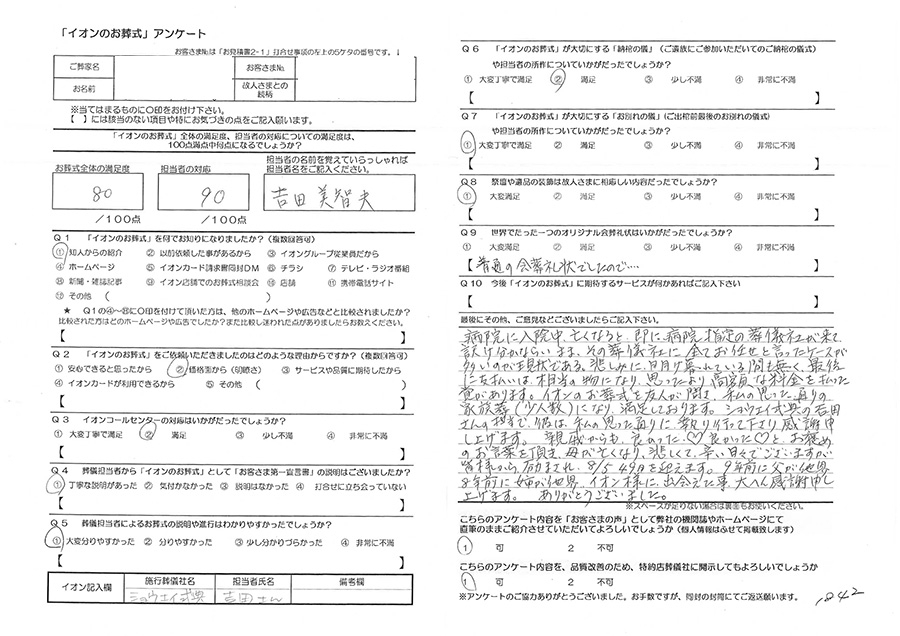 「イオンのお葬式」アンケート
お客さま№は「お見積書2-1」打合せ事項の左上の5ケタの番号です。↓
ご葬家名
お客さま№
お名前
故人さまとの続柄
※当てはまるものに〇印をお付け下さい。
【 】には該当のない項目や特にお気づきの点をご記入願います。
「イオンのお葬式」全体の満足度、担当者の対応についての満足度は、
100点満点中何点になるでしょうか？
お葬式全体の満足度
担当者の対応
担当者の名前を覚えていらっしゃれば
担当者名をご記入ください。
80
90
吉田 美智夫
／100点
／100点
Q1 「イオンのお葬式」を何でお知りになりましたか？(複数回答可)
① 知人からの紹介 ② 以前依頼した事があるから ③ イオングループ従業員だから
④ ホームページ ⑤ イオンカード請求書同封DM ⑥ チラシ ⑦ テレビ・ラジオ番組
⑧ 新聞・雑誌記事 ⑨ イオン店舗でのお葬式相談会 ⑩ 店舗 ⑪ 携帯電話サイト
⑫ その他 ( )
★ Q1の④～⑪に〇印を付けて頂いた方は、他のホームページや広告などと比較されましたか？
比較された方はどのホームページや広告でしたか？また比較し迷われた点がありましたらお教えください。
【 】
Q2 「イオンのお葬式」をご依頼いただきましたのはどのような理由からですか？(複数回答可)
① 安心できると思ったから ② 価格面から(明瞭さ) ③ サービスや品質に期待したから
④ イオンカードが利用できるから ⑤ その他 ( )
【 】
Q3 イオンコールセンターの対応はいかがだったでしょうか？
① 大変丁寧で満足 ② 満足 ③ 少し不満 ④ 非常に不満
【 】
Q4 葬儀担当者から「イオンのお葬式」として「お客さま第一宣言書」の説明はございましたか？
① 丁寧な説明があった ② 気付かなかった ③ 説明はなかった ④ 打合せに立ち会っていない
【 】
Q5 葬儀担当者によるお葬式の説明や進行はわかりやすかったでしょうか？
① 大変分りやすかった ② 分りやすかった ③ 少し分かりづらかった ④ 非常に不満
【 】
イオン記入欄
施行葬儀社名
担当者氏名
備考欄
ショウエイ式典
吉田さん
Q6 「イオンのお葬式」が大切にする「納棺の儀」(ご遺族にご参加いただいてのご納棺の儀式)
や担当者の所作についていかがだったでしょうか？
① 大変丁寧で満足 ② 満足 ③ 少し不満 ④ 非常に不満
【 】
Q7 「イオンのお葬式」が大切する「お別れの儀」(ご出棺前最後のお別れの儀式)
や担当者の所作についていかがだったでしょうか？
① 大変丁寧で満足 ② 満足 ③ 少し不満 ④ 非常に不満
【 】
Q8 祭壇や遺品の装飾は故人さまに相応しい内容だったでしょうか？
① 大変満足 ② 満足 ③ 少し不満 ④ 非常に不満
【 】
Q9 世界でたった一つのオリジナル会葬礼状はいかがだったでしょうか？
① 大変満足 ② 満足 ③ 少し不満 ④ 非常に不満
【普通の会葬礼状でしたので… 】
Q10 今後「イオンのお葬式」に期待するサービスが何かあればご記入下さい
【 】
最後にその他、ご意見などございましたらご記入下さい。
病院に入院中、亡くなると、即に病院指定の葬儀社が来て
訳け分からないまま、その葬儀社に全てお任せと言ったケースが
多いのが現状である。悲しみに、日月け暮れている間も無く、最後
に支払いは、相当の物になり、思ったより高額な料金を払った
覚があります。イオンのお葬式を友人が聞き、私の思った通りの
家族葬(少人数)になり、満足しております。ショウエイ式典の吉田
さんの担当で、彼は、私の思った通りに執り行って下さり、感謝申
し上げます。親戚からも、良かった♡良かった♡と、お褒め
のお言葉を頂き、母が亡くなり、悲しくて、辛い日々でございますが
皆様から励まされ、8/5 49日を迎えます。9年前に父が他界
8年前に姉が他界、イオン様に、出会えた事、大へん感謝申し
上げます。ありがとうございました。
※スペースが足りない場合は裏面もお使いください。
こちらのアンケート内容を「お客さまの声」として弊社の機関誌やホームページにて
直筆のままご紹介させていただいてよろしいでしょうか(個人情報はふせて掲載致します)
1 可 2 不可
こちらのアンケート内容を、品質改善のため、特約店葬儀社に開示してもよろしいでしょうか
1 可 2 不可
※アンケートのご協力ありがとうございました。お手数ですが、同封の封筒にてご返送願います。
1842